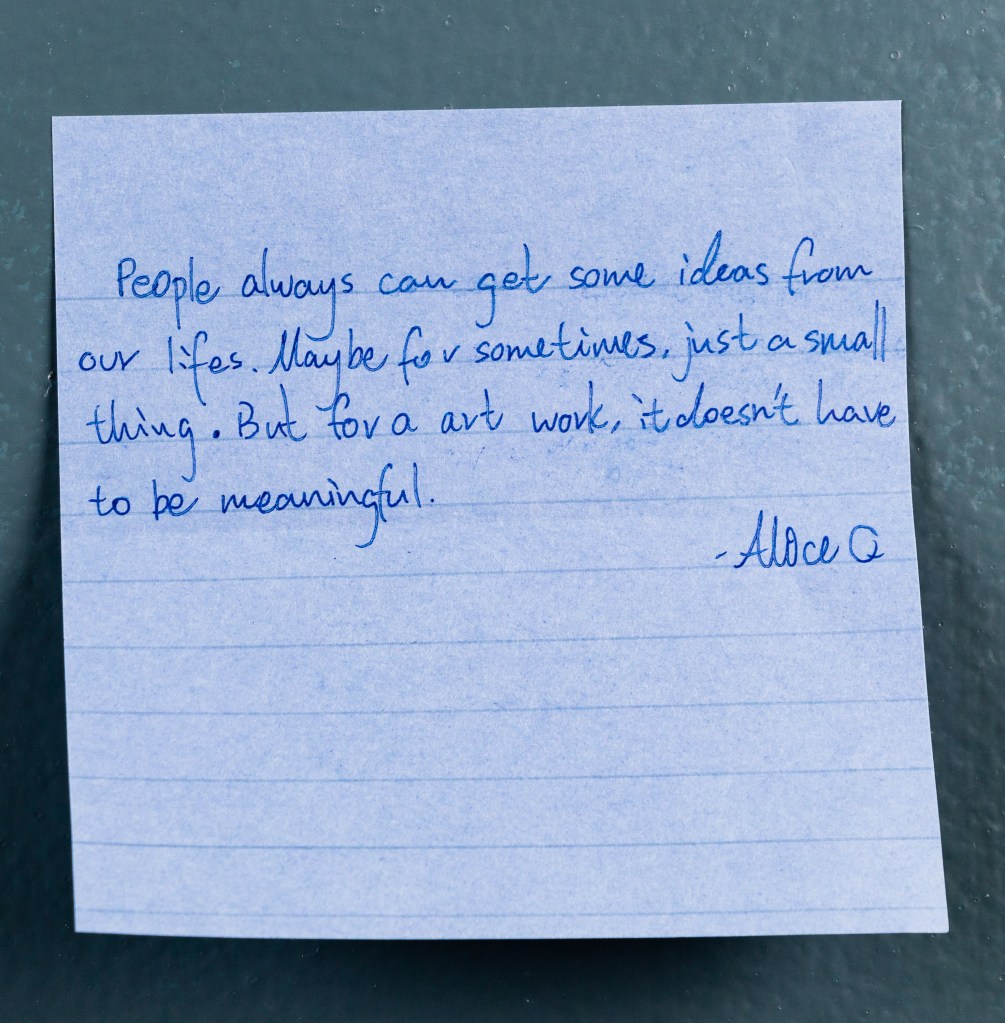 People always can get some ideas from
our lifes. Maybe for sometimes, just a small
thing. But for a art work, it doesn't have
to be meaningful.
-Alice Q